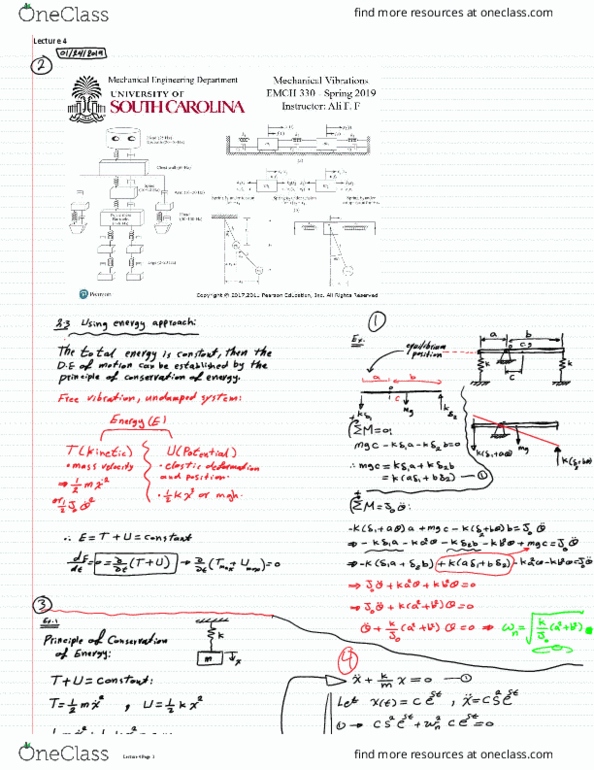 OneClass
find more resources at oneclass.com
Lecture 4
01/24/2019
②
Mechanical Engineering Department
UNIVERSITY OF
SOUTH CAROLINA
Mechanical Vibrations
EMCH 330 - Spring 2019
Instructor: Ali F. F
Pearson
Copyright © 2017, 2011 Pearson Education, Inc. All Rights Reserved
2.3 Using energy approach:
The total energy is constant, then the
D.E of motion can be established by the
principle of conservation of energy.
Free vibration, undamped system:
Energy (E)
T (Kinetic)
• mass velocity
→ ½ m ẋ²
or ½ J₀ θ̇²
U (Potential)
• elastic deformation
and position.
• ½ k x² or mgh.
∴ E = T + U = constant
dE/dt = 0 = D/Dt (T + U) → D/Dt (Tmax + Umax) = 0
①
Ex.
equilibrium
position
a b
c.g
k k
c
a b
c
kδ₁ mg kδ₂
ΣM = 0;
mgc - kδ₁a - kδ₂b = 0
∴ mgc = kδ₁a + kδ₂b
= k(aδ₁ + bδ₂) — ①
k(δ₁+aθ) mg
k(δ₂+bθ)
ΣM = J₀ θ̈
-k(δ₁+aθ)a + mgc - k(δ₂+bθ)b = J₀ θ̈
⇒ -kδ₁a - ka²θ - kδ₂b - kb²θ + mgc = J₀ θ̈
⇒ -k(δ₁a + δ₂b) + k(aδ₁+bδ₂) - ka²θ - kb²θ = J₀ θ̈
⇒ J₀ θ̈ + ka²θ + kb²θ = 0
⇒ J₀ θ̈ + k(a²+b²)θ = 0
θ̈ + k/J₀ (a²+b²) θ = 0 ⇒ ωn = √(k/J₀ (a²+b²))
③
Ex.1
Principle of Conservation
of Energy:
k
m
x
T + U = constant:
T = ½ m ẋ² , U = ½ k x²
④
ẍ + k/m x = 0 — ①
Let x(t) = C e^st , ẍ = C s² e^st
① → C s² e^st + ωn² C e^st = 0
OneClass
Lecture 4 Page 1
find more resources at oneclass.com